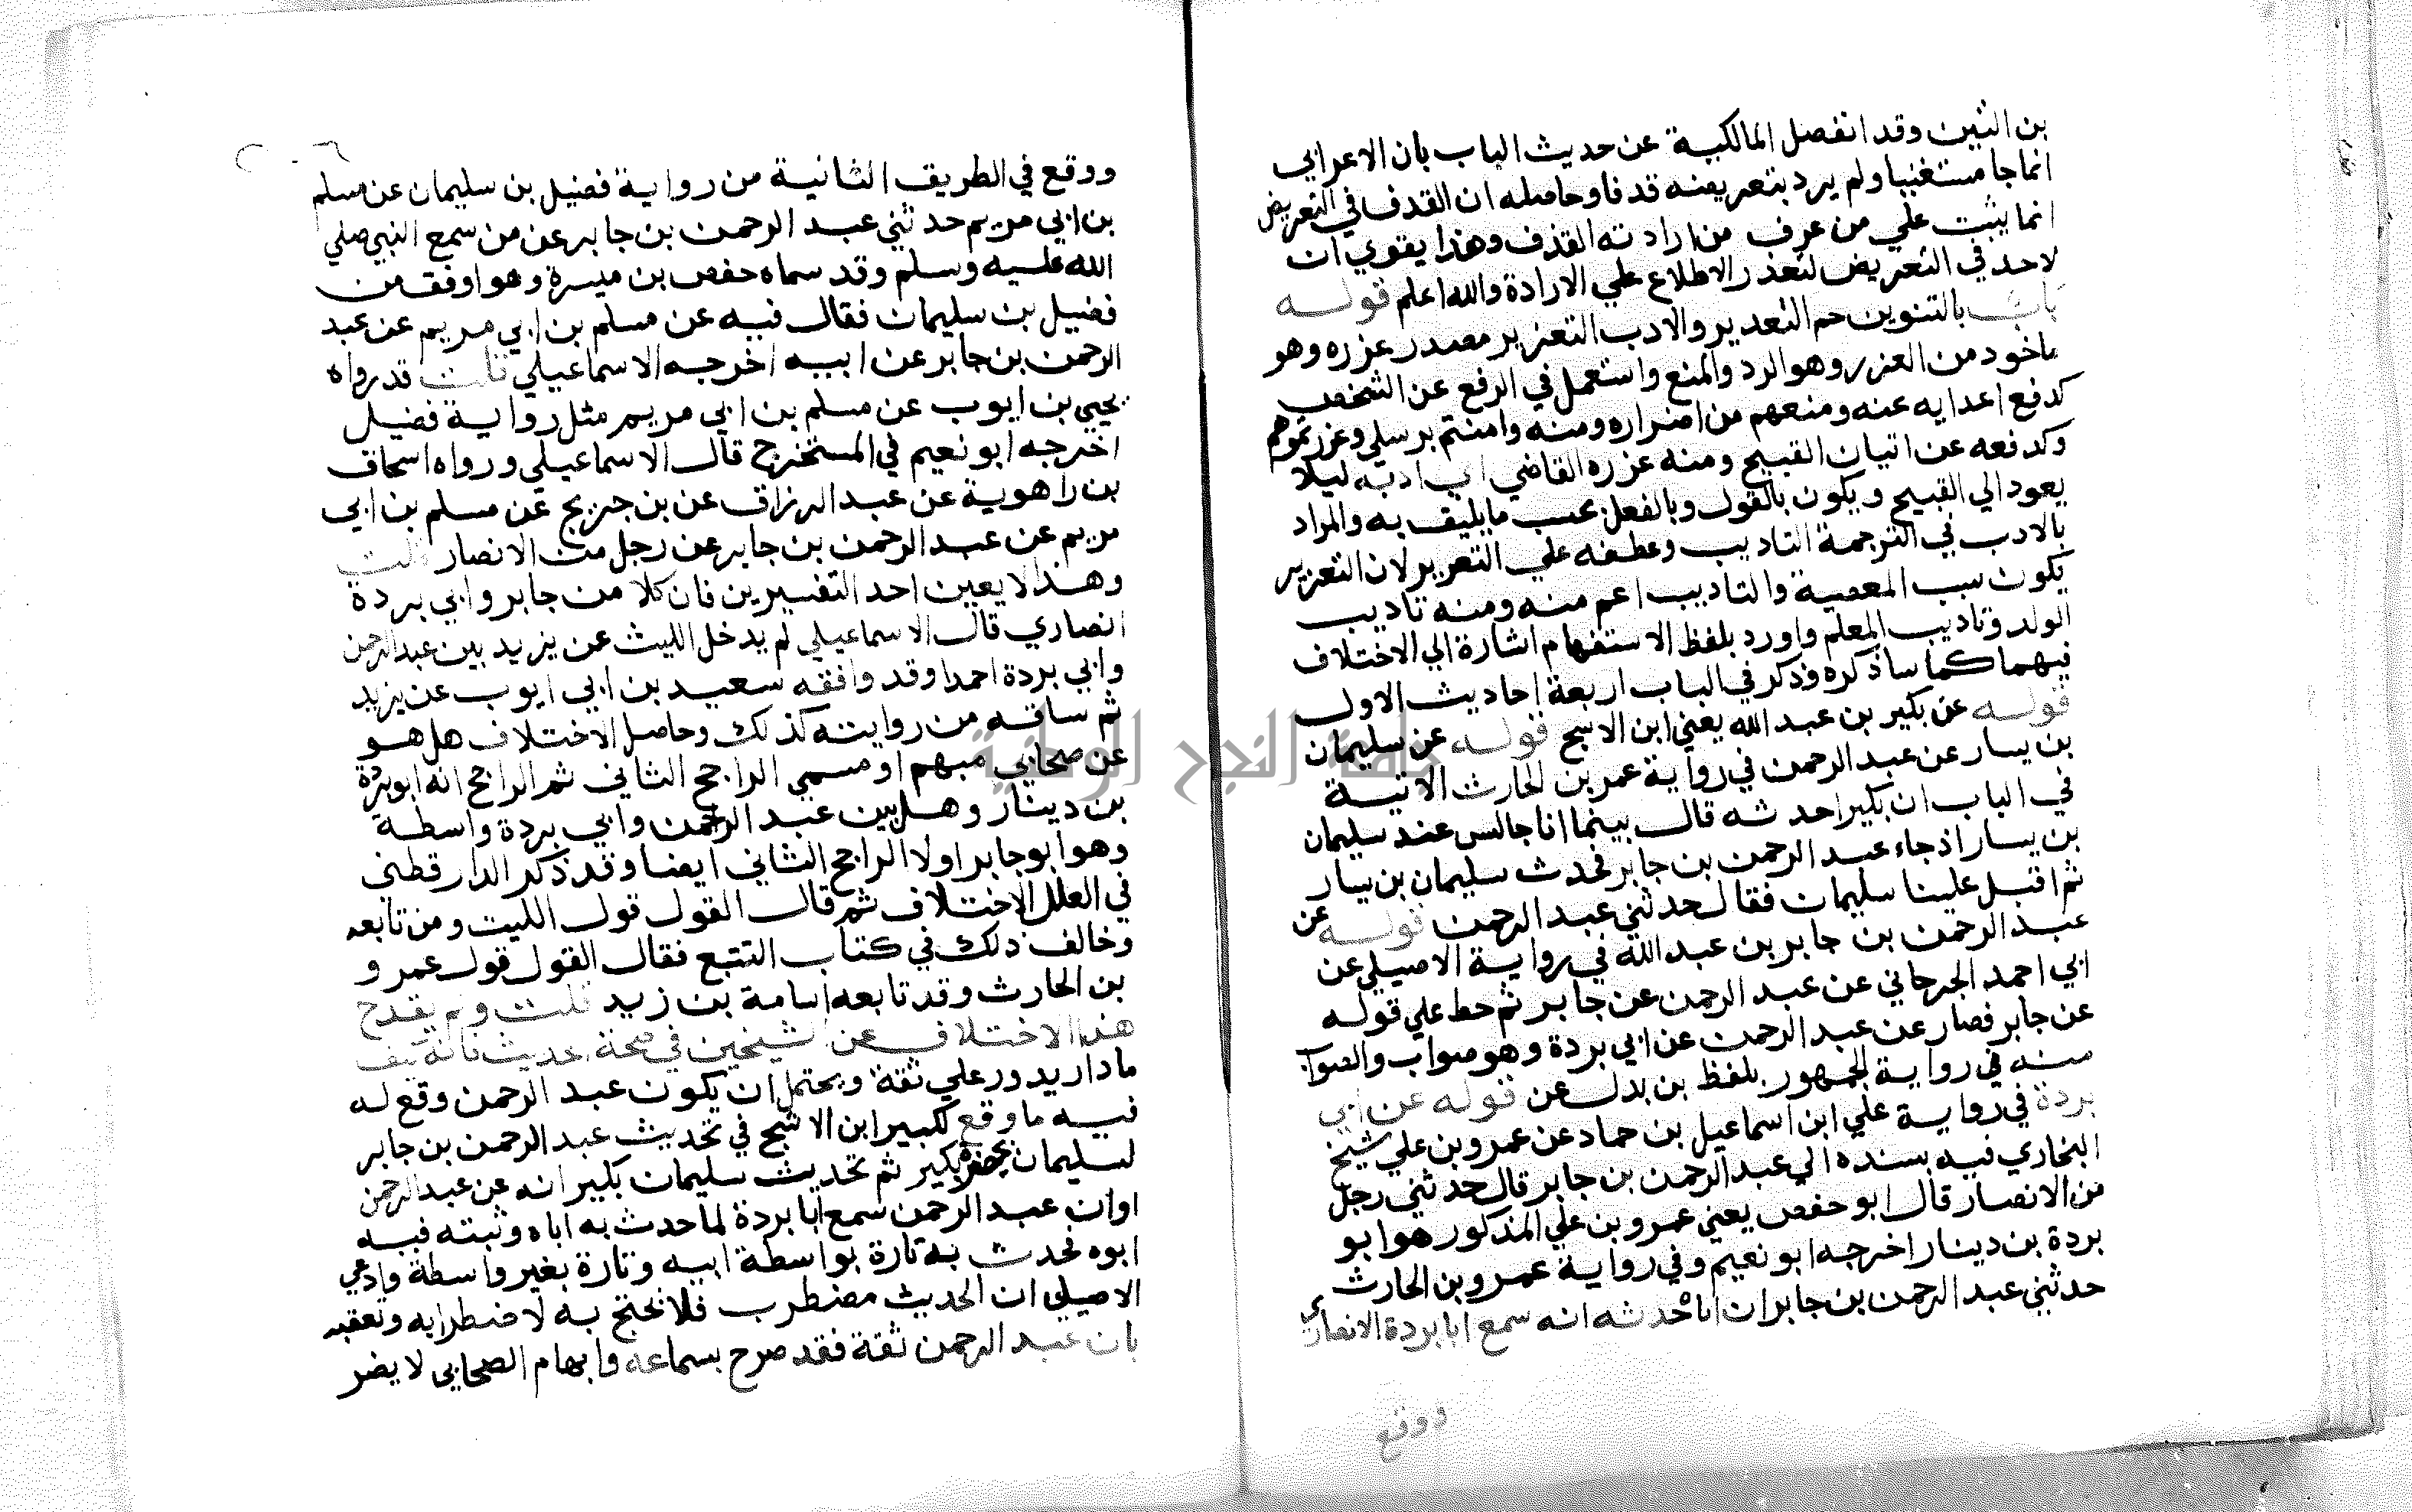 بن التين وقد انفصل المالكية عن حديث الباب بان الاعرابي
انما جا مستغيبا ولم يرد بتعريضه قدفا وحاصله ان القدف في التعريض
انما يثبت علي من عرف من ارادته القذف وهذا يقوي ان
لا حد في التعريض لتعذر الاطلاع علي الارادة والله اعلم قوله
باب بالتنوين حم التعدير والادب التعزير مصدر عزره وهو
ماخود من العزر وهو الرد والمنع واستعمل في الرفع عن الشخص
كدفع اعدايه عنه ومنعهم من اضراره ومنه وامنتم برسلي وعزرتموهم
وكدفعه عن اتيان القبيح ومنه عزره القاضي اي ادبه ليلا
يعود الي القبيح ويكون بالقول وبالفعل بحسب ما يليق به والمراد
بالادب في الترجمة التاديب وعطفه علي التعزير لان التعزير
يكون سبب المعصية والتاديب اعم منه ومنه تاديب
الولد وتاديب المعلم واورد بلفظ الاستفهام اشارة الي الاختلاف
فيهما كما ساذكره وذكر في الباب اربعة احاديث الاول
قوله عن بكير بن عبد الله يعني ابن الاشج قوله عن سليمان
بن يسار عن عبد الرحمن في رواية عمر بن الحارث الاتية
في الباب ان بكيرا حدثه قال بينما انا جالس عند سليمان
بن يسار اذ جاء عبد الرحمن بن جابر فحدث سليمان بن يسار
ثم اقبل علينا سليمان فقال حدثني عبد الرحمن قوله عن
عبد الرحمن بن جابر بن عبد الله في رواية الاصيلي عن
ابي احمد الجرجاني عن عبد الرحمن عن جابر ثم حط علي قوله
عن جابر فصار عن عبد الرحمن عن ابي بردة وهو صواب والصواب
منه في رواية الجمهور بلفظ بن بدل عن قوله عن ابي
بردة في رواية علي ابن اسماعيل بن حماد عن عمرو بن علي شيخ
البخاري فيه بسنده الي عبد الرحمن بن جابر قال حدثني رجل
من الانصار قال ابو حفص يعني عمرو بن علي المذكور هو ابو
بردة بن دينار اخرجه ابو نعيم وفي رواية عمرو بن الحارث
حدثني عبد الرحمن بن جابر ان اباه حدثه انه سمع ابا بردة الانصاري
ووقع
ووقع في الطريق الثانية من رواية فضيل بن سليمان عن مسلم
بن ابي مريم حدثني عبد الرحمن بن جابر عن من سمع النبي صلي
الله عليه وسلم وقد سماه حفص بن ميسرة وهو اوفق من
فضيل بن سليمان فقال فيه عن مسلم بن ابي مريم عن عبد
الرحمن بن جابر عن ابيه اخرجه الاسماعيلي قلت قد رواه
يحيي بن ايوب عن مسلم بن ابي مريم مثل رواية فضيل
اخرجه ابو نعيم في المستخرج قال الاسماعيلي ورواه اسحاق
بن راهوية عن عبد الرزاق عن بن جريج عن مسلم بن ابي
مريم عن عبد الرحمن بن جابر عن رجل من الانصار قلت
وهذا لا يعين احد التفسيرين فان كلا من جابر وابي بردة
انصاري قال الاسماعيلي لم يدخل الليث عن يزيد بين عبد الرحمن
وابي بردة احدا وقد وافقه سعيد بن ابي ايوب عن يزيد
ثم ساقه من روايته كذلك وحاصل الاختلاف هل هو
عن صحابي مبهم او مسمي الراجح الثاني ثم الراجح انه ابو بردة
بن دينار وهل بين عبد الرحمن وابي بردة واسطة
وهو ابو جابر اولا الراجح الثاني ايضا وقد ذكر الدارقطني
في العلل الاختلاف ثم قال القول قول الليث ومن تابعه
وخالف ذلك في كتاب التتبع فقال القول قول عمرو
بن الحارث وقد تابعه اسامة بن زيد قلت ولم يقدح
هذا الاختلاف عن الشيخين في صحة الحديث فانه كيف
ما دار يدور علي ثقة ويحتمل ان يكون عبد الرحمن وقع له
فيه ما وقع لكبير ابن الاشج في تحديث عبد الرحمن بن جابر
لسليمان بحضرة بكير ثم تحديث سليمان بكير انه عن عبد الرحمن
او ان عبد الرحمن سمع ابا بردة لما حدث به اباه وثبته فيه
ابوه فحدث به تارة بواسطة ابيه وتارة بغير واسطة وادعي
الاصيلي ان الحديث مضطرب فلا تحتج به لاضطرابه وتعقبه
بان عبد الرحمن ثقة فقد صرح بسماعه وابهام الصحابي لا يضر
جامعة النجاح الوطنية